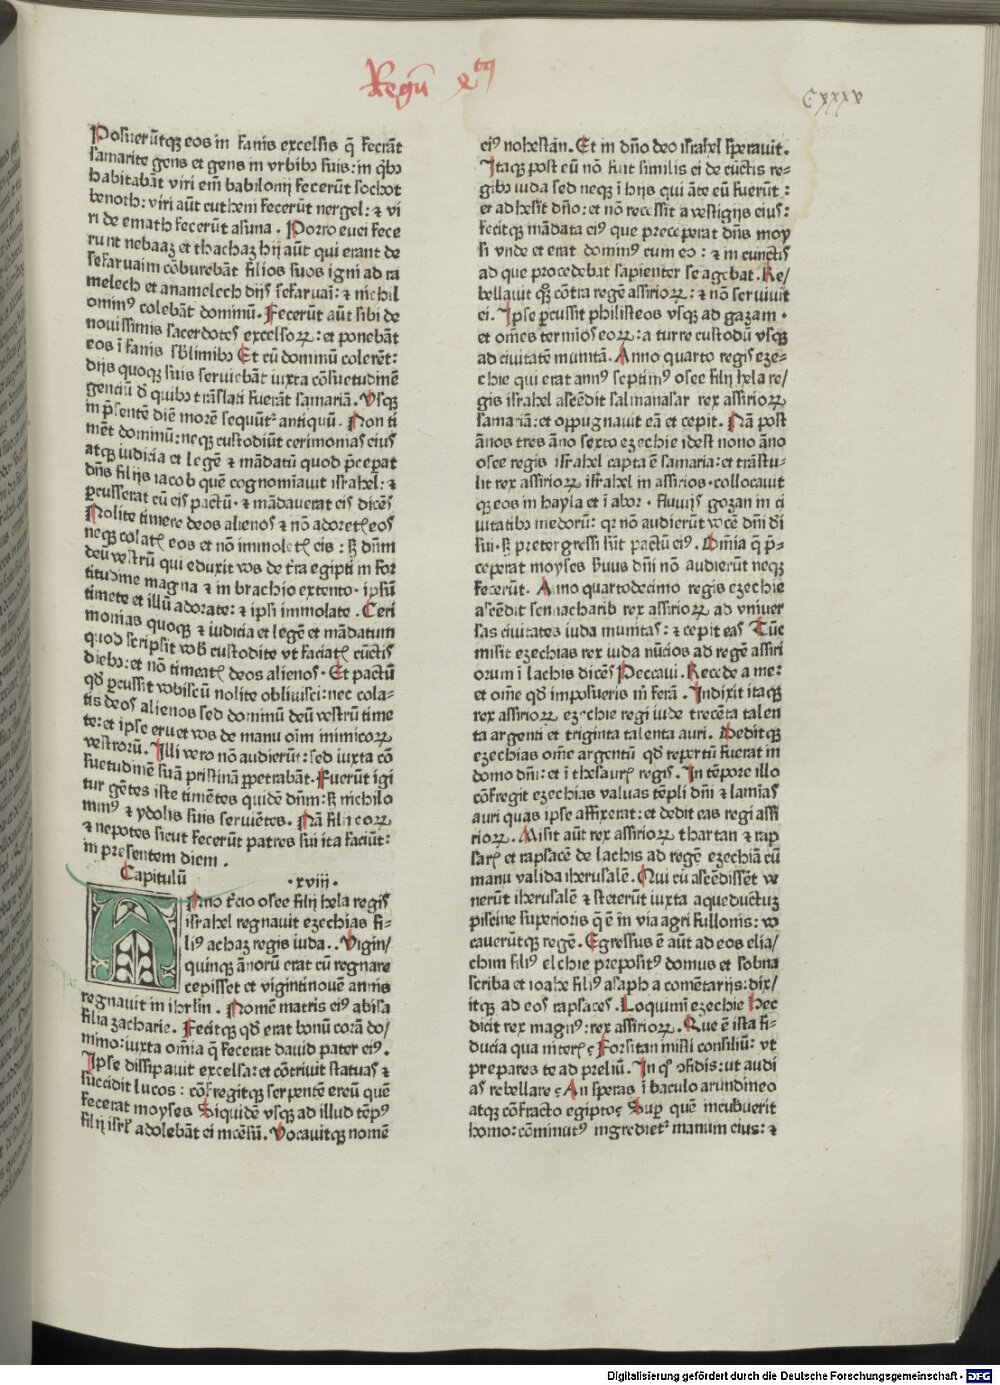 Regū 4tꝰ
Cxxxv
Posuerūtqꝫ eos in fanis excelsis q̄ fecrāt
samarite gens et gens in vrbibꝫ suis: in q̄bꝫ
habitabāt viri em̄ babilonij fecerūt sochot
benoth: viri aūt cutheni fecerūt nergel: ⁊ vi
ri de emath fecerūt asima . Porro euei fece
runt nebaaz et thachaz hij aūt qui erant de
sefaruaim cōburebāt filios suos igni ad ra
melech et anamelech dijs sefaruaī: ⁊ nichil
ominꝰ colebāt dominū. Fecerūt aūt sibi de
nouissimis sacerdotes excelsoꝝ: et ponebāt
eos ī fanis sb̄limibꝫ Et cū dominū colerēt:
dijs quoqꝫ suis seruiebāt iuxta cōsuetudinē
gentiū d̄ quibꝫ trāslati fuerāt samariā. Vsqꝫ
in p̄sentē diē morē sequūtᷣ antiquū. Non ti
mēt dominū: neqꝫ custodiūt cerimonias eius
atqꝫ iudicia et legē ⁊ mādatū quod p̄ceperat
dn̄s filijs iacob quē cognomiauit israhel: ⁊
ꝑcusserat cū eis pactū· ⁊ mādauerat eis dicēs
Nolite timere deos alienos ⁊ nō adoretꝭ eos
neqꝫ colatꝭ eos et nō immoletꝭ eis: sꝫ dn̄m
deū vestrū qui eduxit vos de t̄ra egipti in for
titudine magna ⁊ in brachio extento· ipsū
timete et illū adorate: ⁊ ipsi immolate . Ceri
monias quoqꝫ ⁊ iudicia et legē et mādatum
quod scripsit vob̄ custodite vt faciatꝭ cūctis
diebꝫ: et nō timeatꝭ deos alienos· Et pactū
qd̄ ꝑcussit vobiscū nolite obliuisci: nec cola=
tis deos alienos sed dominū deū vestrū time
te: et ipse eruet vos de manu oīm inimicoꝝ
vestrorū. Illi vero nō audierūt: sed iuxta cō
suetudinē suā pristinā ꝑpetrabāt· Fuerūt igi
tur gētes iste timētes quidē dn̄m: sꝫ nichilo
minꝰ ⁊ ydolis suis seruiētes. Nā filij eoꝝ
⁊ nepotes sicut fecerūt patres sui ita faciūt:
in presentem diem .
Capitulū ·xviij·
Anno t̄cio osee filij hela regis
israhel regnauit ezechias fi=
liꝰ achaz regis iuda.. Vigin/
quinqꝫ ānorū erat cū regnare
cepisset et vigintinouē annis
regnauit in ihrl̄m . Nomē matris eiꝰ abisa
filia zacharie. Fecitqꝫ qd̄ erat bonū corā do/
mino: iuxta om̄ia q̄ fecerat dauid pater eiꝰ.
Ipse dissipauit excelsa: et cōtriuit statuas ⁊
succidit lucos: cōfregitqꝫ serpentē ereū quē
fecerat moyses Siquidē vsqꝫ ad illud tēpꝰ
filij isrl̄ adolebāt ei incēsū. Vocauitqꝫ nomē
eiꝰ nohestān. Et in dn̄o deo israhel sperauit.
Itaqꝫ post eū nō fuit similis ei de cūctis re=
gibꝫ iuda sed neqꝫ ī hijs qui āte eū fuerūt:
et adhesit dn̄o: et nō recessit a vestigijs eius:
fecitqꝫ mādata eiꝰ que preceperat dn̄s moy
si vnde et erat dominꝰ cum eo: ⁊ in cunctis
ad que procedebat sapienter se agebat. Re/
bellauit qꝫ cōtra regē assirioꝝ: ⁊ nō seruiuit
ei. Ipse ꝑcussit philisteos vsqꝫ ad gazam·
et om̄es termios eoꝝ: a turre custodū vsqꝫ
ad ciuitatē munitā. Anno quarto regis eze=
chie qui erat annꝰ septimꝰ osee filij hela re/
gis israhel ascēdit salmanasar rex assirioꝝ
samariā: et oppugnauit eā et cepit. Nā post
ānos tres āno sexto ezechie idest nono āno
osee regis israhel capta ē samaria: et trāstu=
lit rex assirioꝝ israhel in assirios· collocauit
qꝫ eos in hayla et ī abor· fluuijs gozan in ci
uitatibꝫ medorū: qꝛ nō audierūt vocē dn̄i dī
sui· sꝫ pretergressi sūt pactū eiꝰ. Om̄ia q̄ p̄=
ceperat moyses suus dn̄i nō audierūt neqꝫ
fecerūt. Anno quartodecimo regis ezechie
ascēdit sennacharib rex assirioꝝ ad vniuer
sas ciuitates iuda munitas: ⁊ cepit eas Tūc
misit ezechias rex iuda nūcios ad regē assiri
orum ī lachis dicēs Peccaui. Recede a me:
et om̄e qd̄ imposueris m̄ ferā. Indixit itaqꝫ
rex assirioꝝ ezechie regi iude trecēta talen
ta argenti et triginta talenta auri. Deditqꝫ
ezechias om̄e argentū qd̄ repertū fuerat in
domo dn̄i: et ī thesaurꝭ regis. In tēpore illo
cōfregit ezechias valuas tēpli dn̄i ⁊ lamīas
auri quas ipse affixerat: et dedit eas regi assi
rioꝝ. Misit aūt rex assirioꝝ thartan ⁊ rap
sarꝭ et rapsacē de lachis ad regē ezechiā cū
manu valida iherusalē. Qui cū ascēdissēt ve
nerūt iherusalē ⁊ steterūt iuxta aqueductuꝫ
piscine superioris q̄ ē in via agri fullonis: vo
cauerūtqꝫ regē. Egressus ē aūt ad eos elia/
chim filiꝰ elchie prepositꝰ domus et sobna
scriba et ioahe filiꝰ asaph a comētarijs: dix/
itqꝫ ad eos rapsaces. Loquimī ezechie Hec
dicit rex magnꝰ: rex assirioꝝ. Que ē ista fi=
ducia qua niterꝭ? Forsitan inisti consiliū: vt
prepares te ad preliū. In qͦ ꝯfidis: ut audi
as rebellare? An speras ī baculo arundineo
atqꝫ cōfracto egipto? Suꝑ quē incubuerit
homo: cōminutꝰ ingredietᷣ manum eius: ⁊
Digitalisierung gefördert durch die Deutsche Forschungsgemeinschaft - DFG